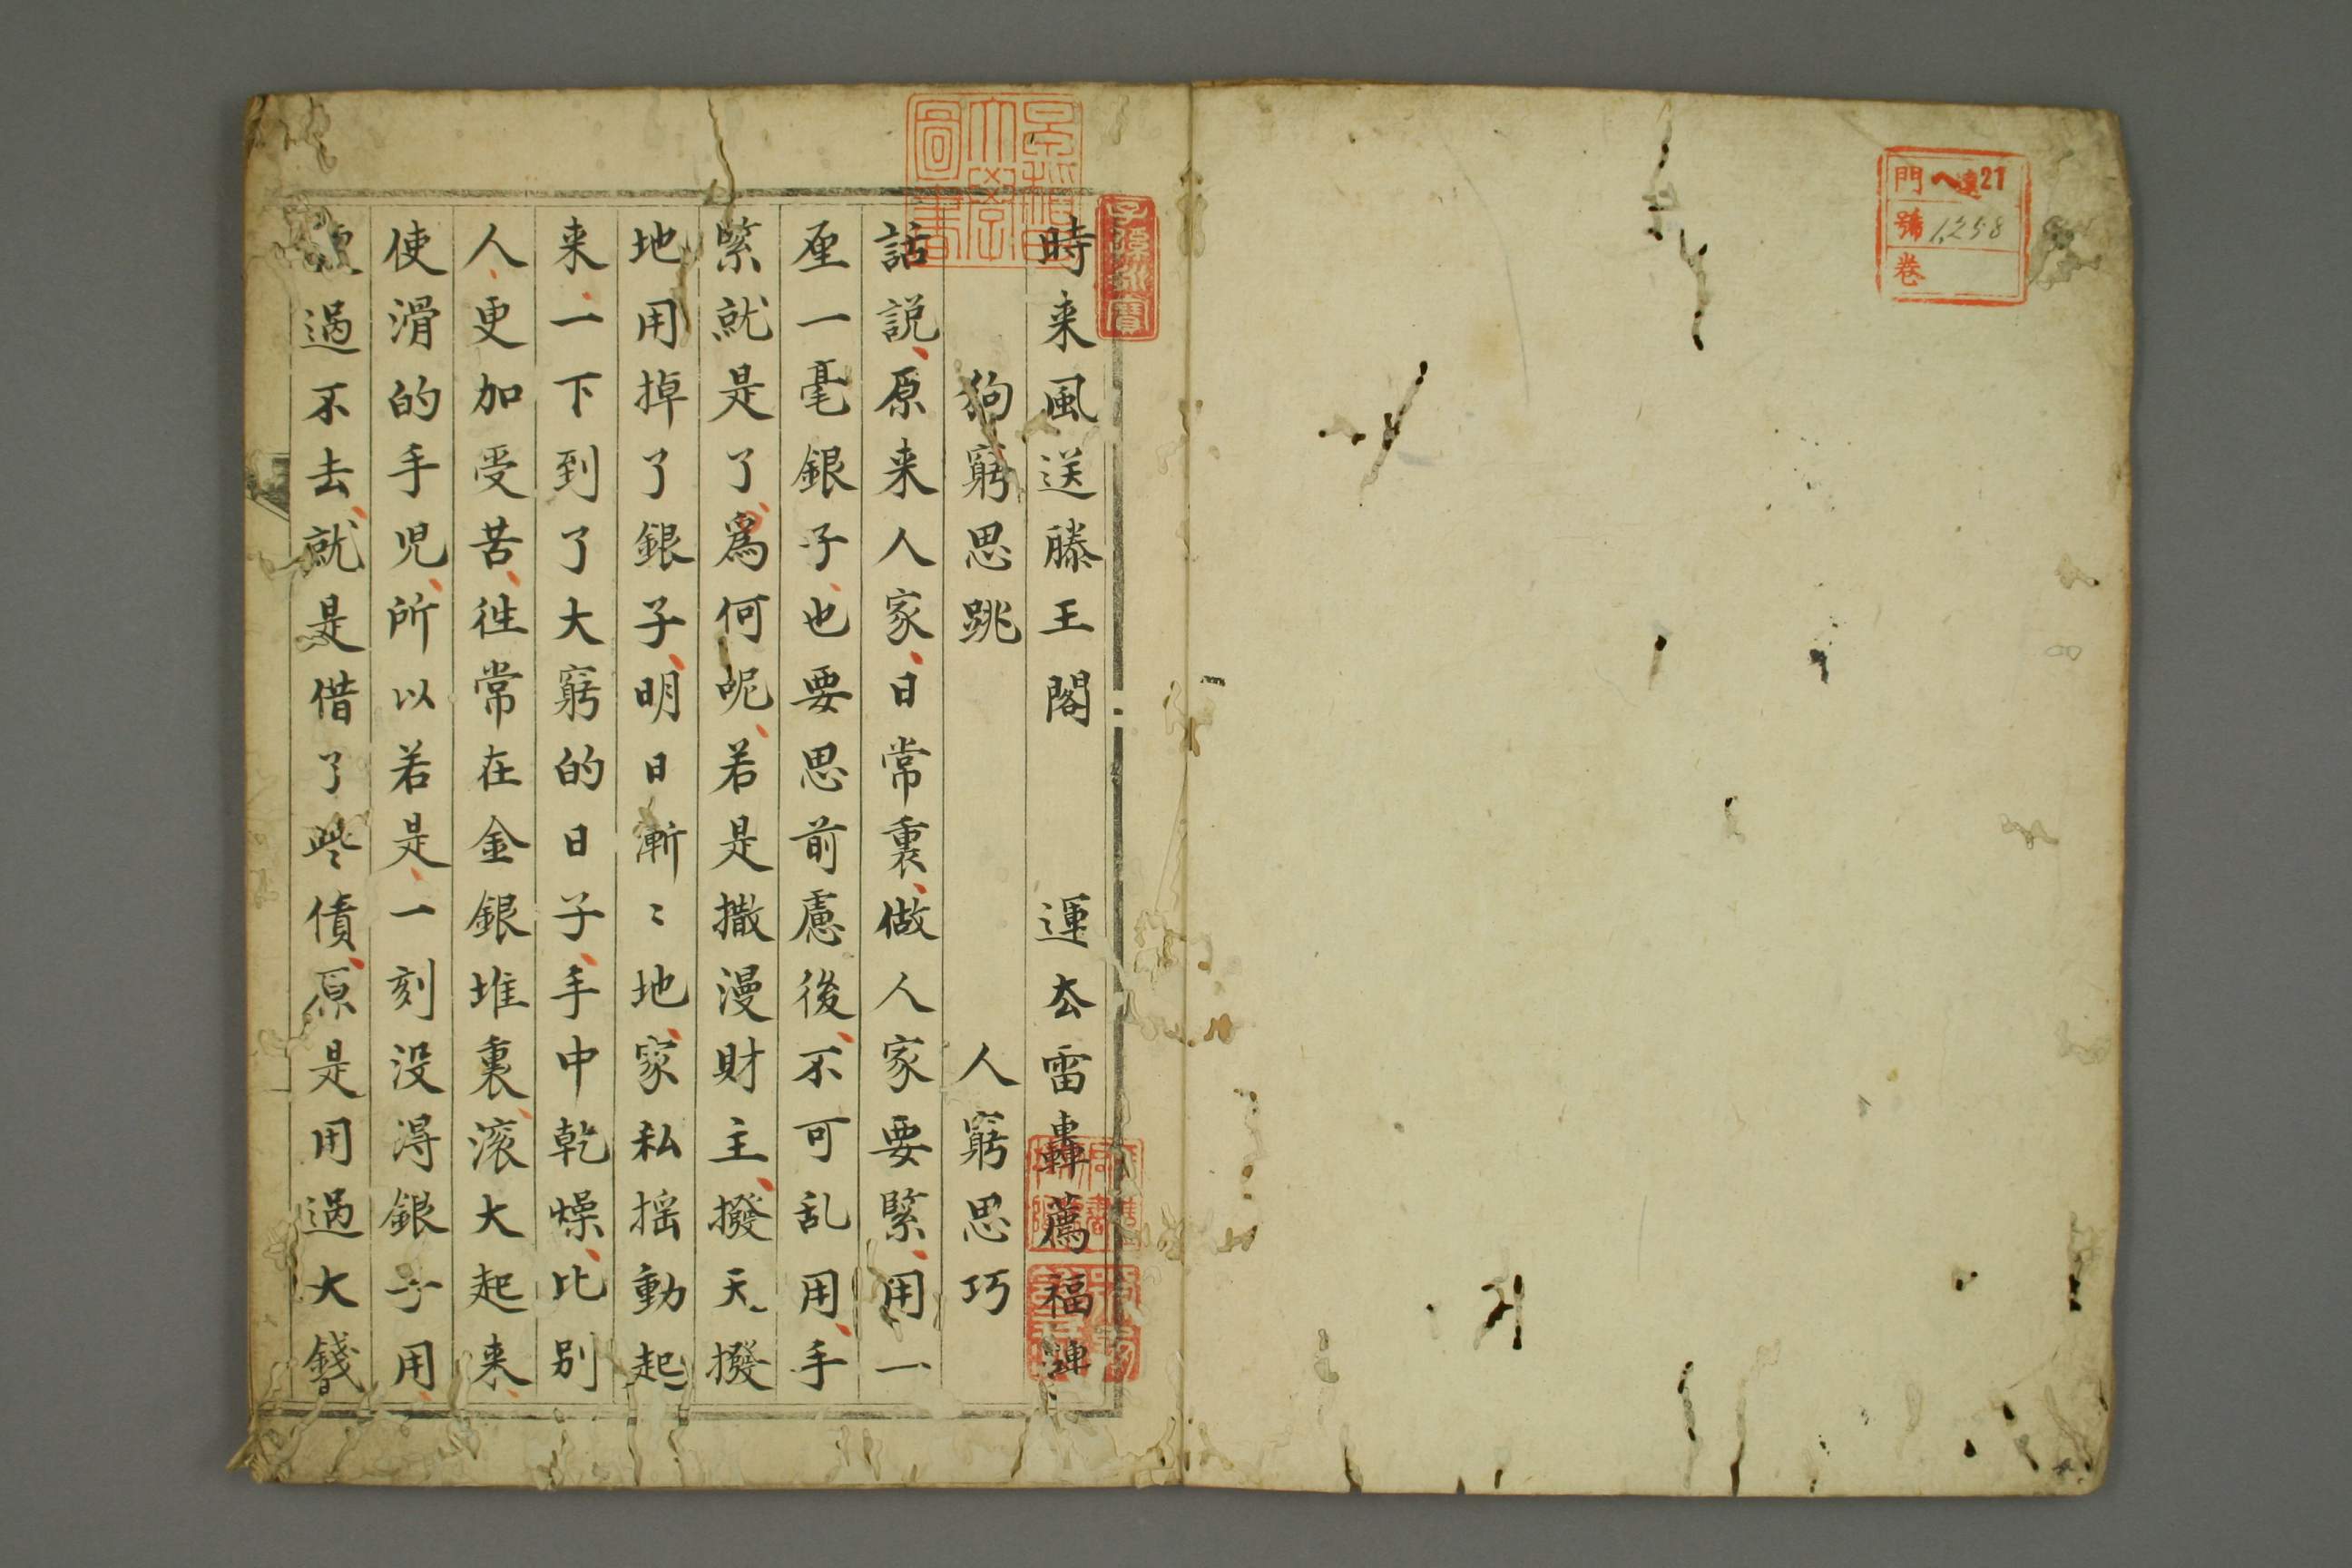 門 ヘ遠21
號 1,258
卷
時来風送滕王閣 運去雷轟薦福碑
狗窮思跳 人窮思巧
話説原来人家日常裏做人家要緊用一
厘一毫銀子也要思前慮後不可乱用手
緊就是了爲何呢若是撒漫財主撥天撥
地用掉了銀子明日漸〻地家私揺動起
来一下到了大窮的日子手中乾燥比別
人更加受苦徃常在金銀堆裏滚大起来
使滑的手児所以若是一刻没得銀子用
過不去就是借了些債原是用過大錢